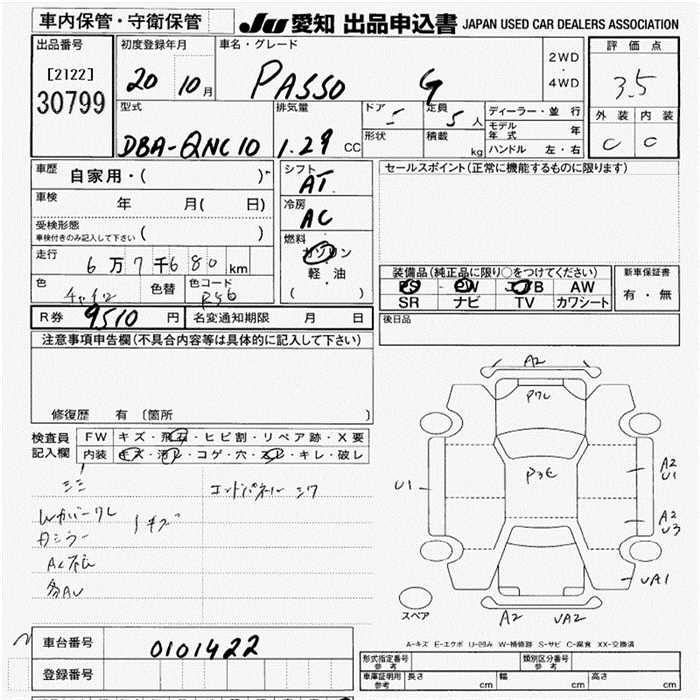 車内保管・守衛保管
JU 愛知 出品申込書 JAPAN USED CAR DEALERS ASSOCIATION
出品番号
[2122]
30799
初度登録年月
20 10月
車名・グレード
PASSO G
2WD
・
4WD
評価点
3.5
外装 内装
C C
型式
DBA-QNC10
排気量
1.29 CC
ドア
定員
5人
形状
積載
kg
ディーラー・並行
モデル年式 年
ハンドル 左・右
車歴
自家用・( )
車検
年 月( 日)
受検形態
車検付きのみ記入して下さい ( )
走行
6万7千680km
色
色替
色コード
R56
シフト
AT
冷房
AC
燃料
ガソリン
軽・油
( )
セールスポイント(正常に機能するものに限ります)
装備品(純正品に限り○をつけてください)
PS PW AW
SR ナビ TV カワシート
新車保証書
有・無
R券 9510円
名変通知期限 月 日
後日品
注意事項申告欄(不具合内容等は具体的に記入して下さい)
修復歴 有〔箇所 〕
検査員
記入欄
FW キズ・飛石・ヒビ割・リペア跡・X要
内装 キズ・汚レ・コゲ・穴・スレ・キレ・破レ
エンドパネル シワ
キズ
A2
P3E
U1
A2
U1
A2
U3
UA1
スペア
A2
UA2
A-キズ E-エクボ U-凹み W-補修跡 S-サビ C-腐食 XX-交換済
車台番号
0101422
登録番号
形式指定番号
参考
類別区分番号
参考
車庫証明用
参考
長さ cm
幅 cm
高さ cm